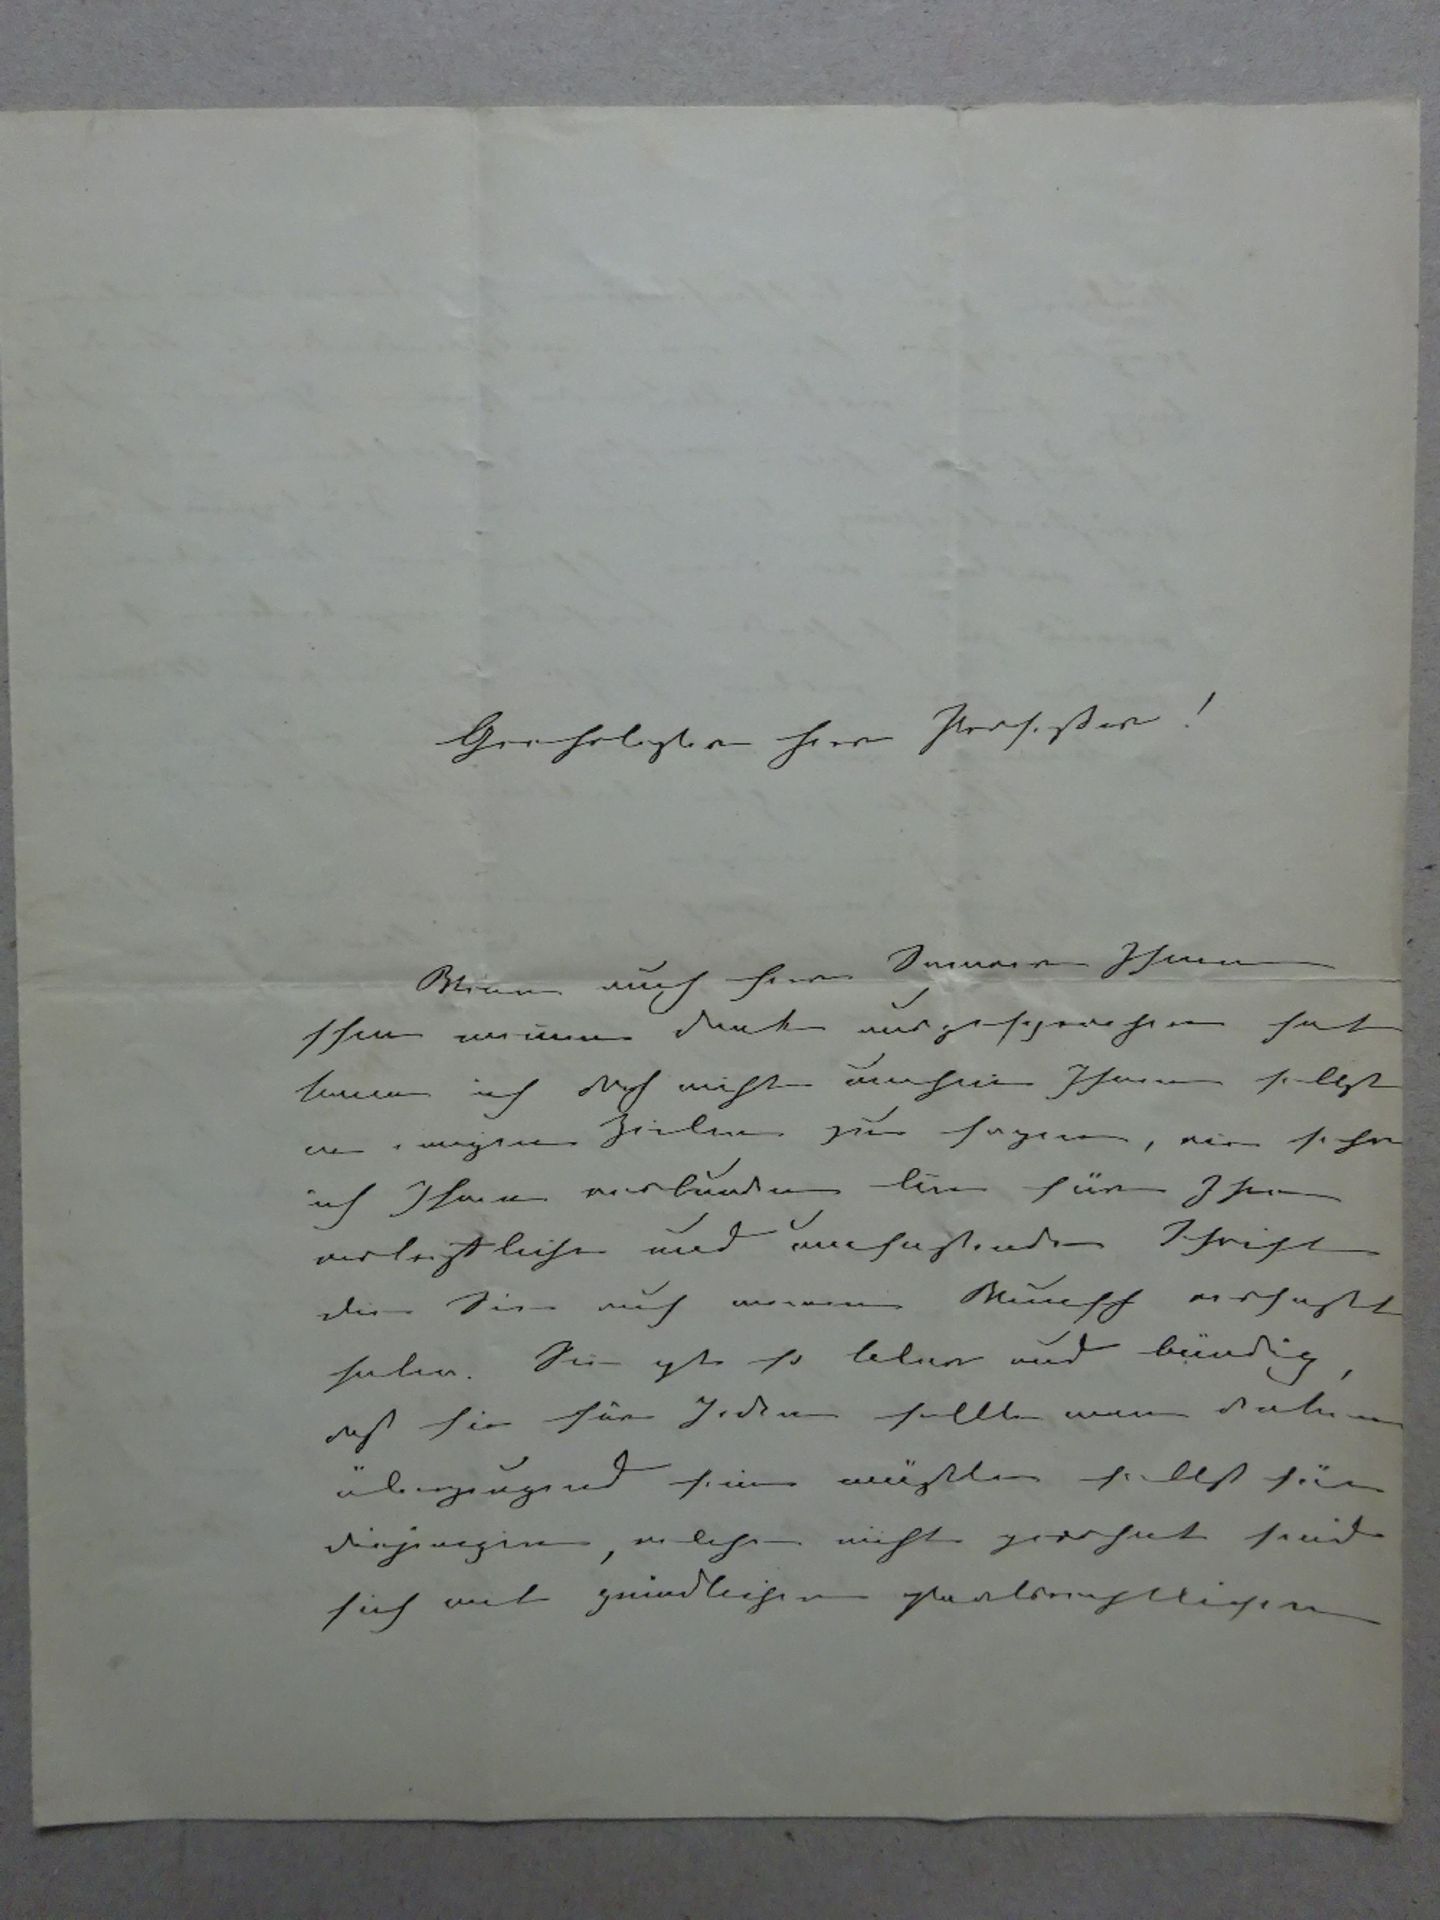 Hochgeehrtester Herr Professor!
Wenn auch Herr Samwer Ihnen
schon meinen Dank ausgesprochen hat
kann ich doch nicht umhin Ihnen selbst
in wenigen Zeilen zu sagen, wie sehr
ich Ihnen verbunden bin für Ihre
vortreffliche und umfassende Schrift
die Sie auf meinen Wunsch verfaßt
haben. Sie ist so klar und bündig,
daß sie für Jeden sollte man denken
überzeugend sein müßte selbst für
diejenigen, welche nicht gewohnt sind
sich mit gründlichen staatsrechtlichen